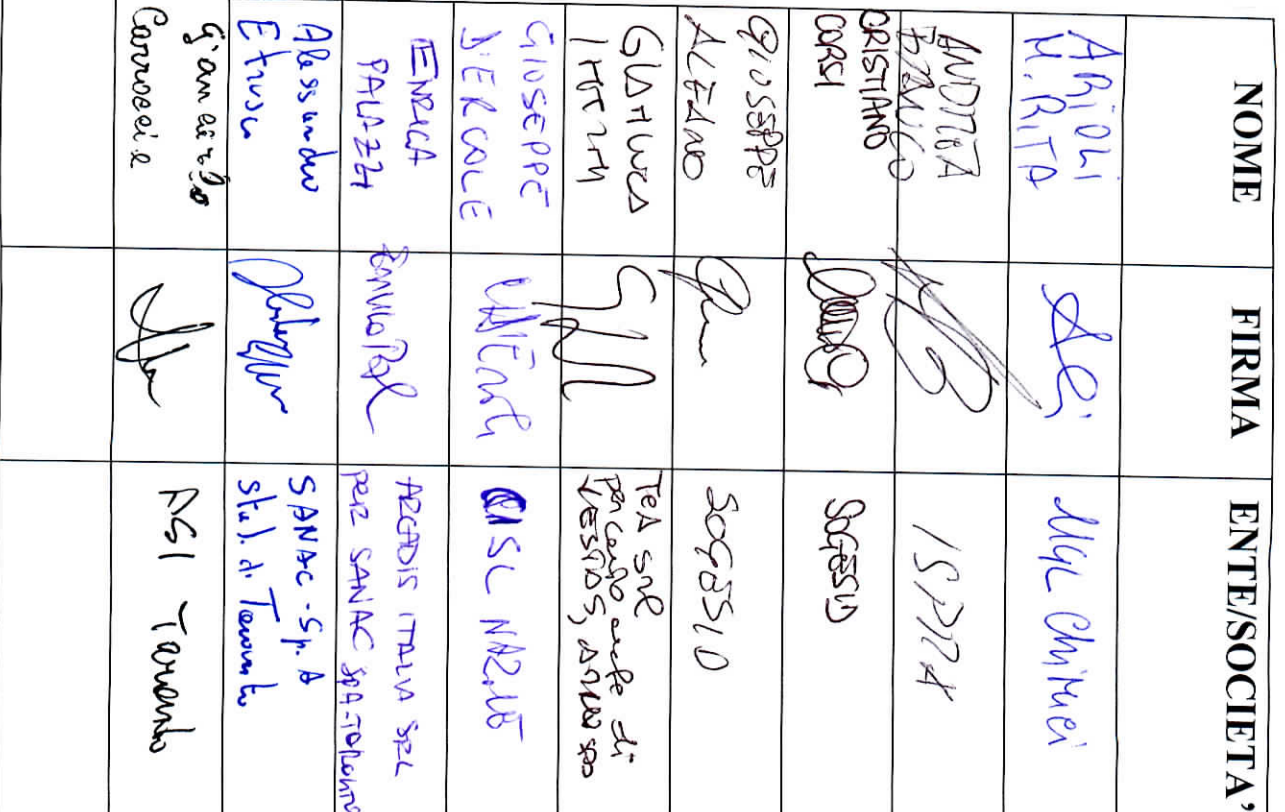 NOME FIRMA ENTE/SOCIETA'
ARIOLI
M. RITA
UGL Chimici
ANDREA
ISPRA
CRISTIANO
CORSI
SOGESID
GIUSEPPE
ALEANO
SOGESID
GIANLUCA
TEA SRL
per conto anche di
VESTAS,
GIUSEPPE
D'ERCOLE
CISL NAZ.LE
ENRICA
PALAZZI
ARCADIS ITALIA SRL
PER SANAC SPA-TARANTO
Alessandro
Etrusco
SANAC - Sp.A
stab. di Taranto
Giancarlo
Carroccia
ASI Taranto